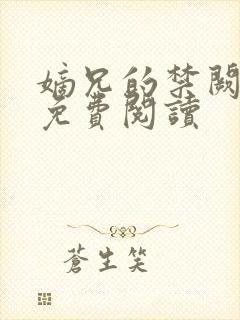 嫡兄的禁闕
免費閱讀
蒼生笑